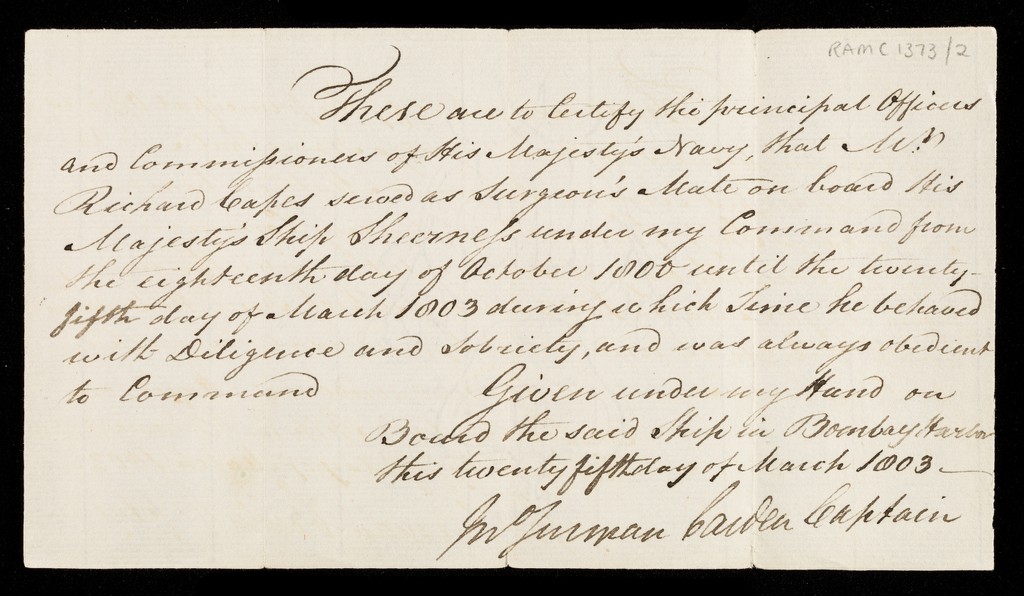 RAMC 1373/2
These are to Certify the principal Officers
and Commissioners of His Majesty's Navy, that Mr.
Richard Capes served as Surgeon's Mate on board His
Majesty's Ship Sheerness under my Command from
the eighteenth day of October 1800 until the twenty-
fifth day of March 1803 during which Time he behaved
with Diligence and Sobriety, and was always obedient
to Command Given under my Hand on
Board the said Ship in Bombay Harbor
this twenty fifth day of March 1803—
Jno Surman Carden Captain